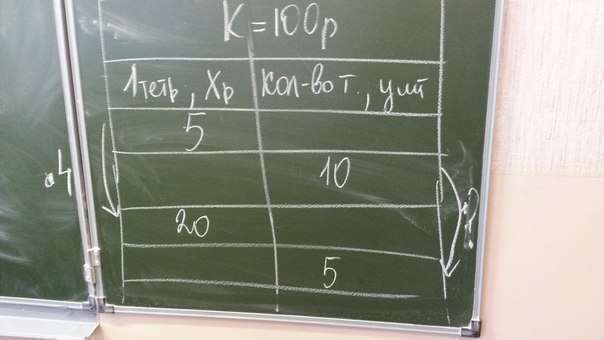 K=100р
1 тетр, Xр Кол-во т., y шт
5
10
20
5